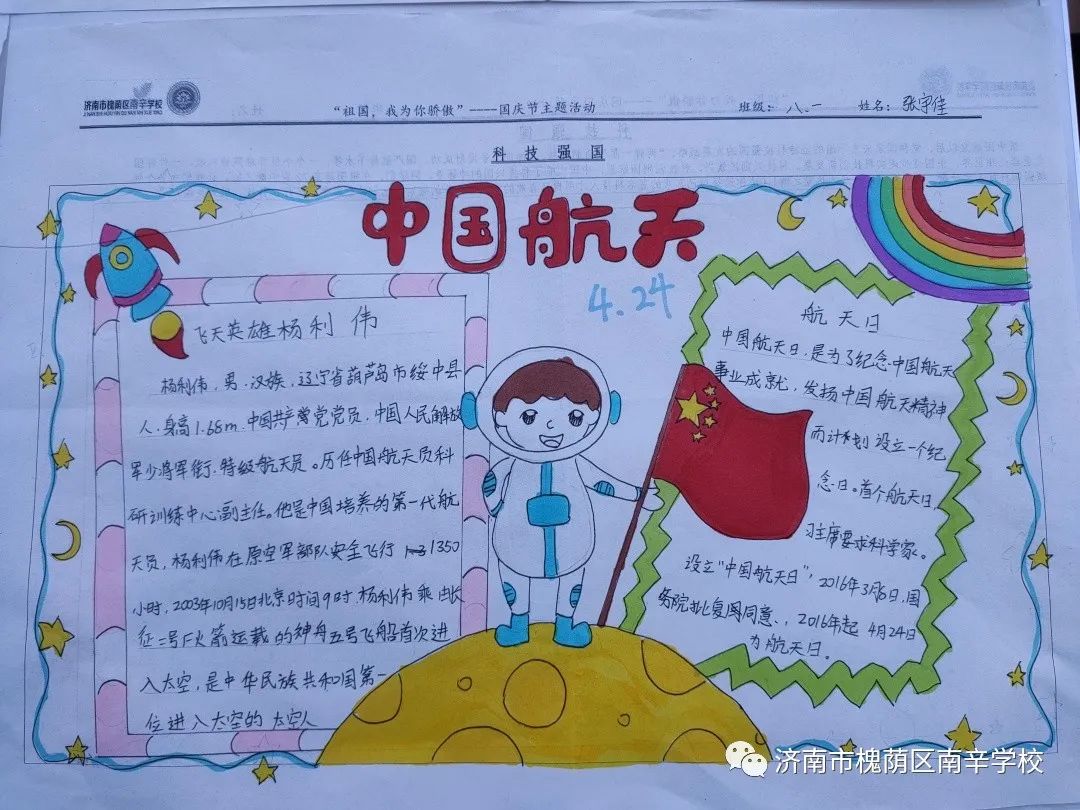 济南市槐荫区南辛学校
“祖国，我为你骄傲”----国庆节主题活动
班级： 八.一
姓名： 张宇佳
科技强国
中国航天
4.24
飞天英雄杨利伟
杨利伟，男.汉族，辽宁省葫芦岛市绥中县
人.身高1.68m.中国共产党党员.中国人民解放
军少将军衔.特级航天员。历任中国航天员科
研训练中心副主任。他是中国培养的第一代航
天员，杨利伟在原空军部队安全飞行1350
小时，2003年10月15日北京时间9时.杨利伟乘由长
征二号F火箭运载的神舟五号飞船首次进
入太空，是中华民族共和国第一
位进入太空的太空人
航天日
中国航天日，是为了纪念中国航天
事业成就，发扬中国航天精神
而计划设立一个纪
念日。首个航天日
习主席要求科学家。
设立“中国航天日”，2016年3月8日，国
务院批复同意、，2016年起4月24日
为航天日。
济南市槐荫区南辛学校